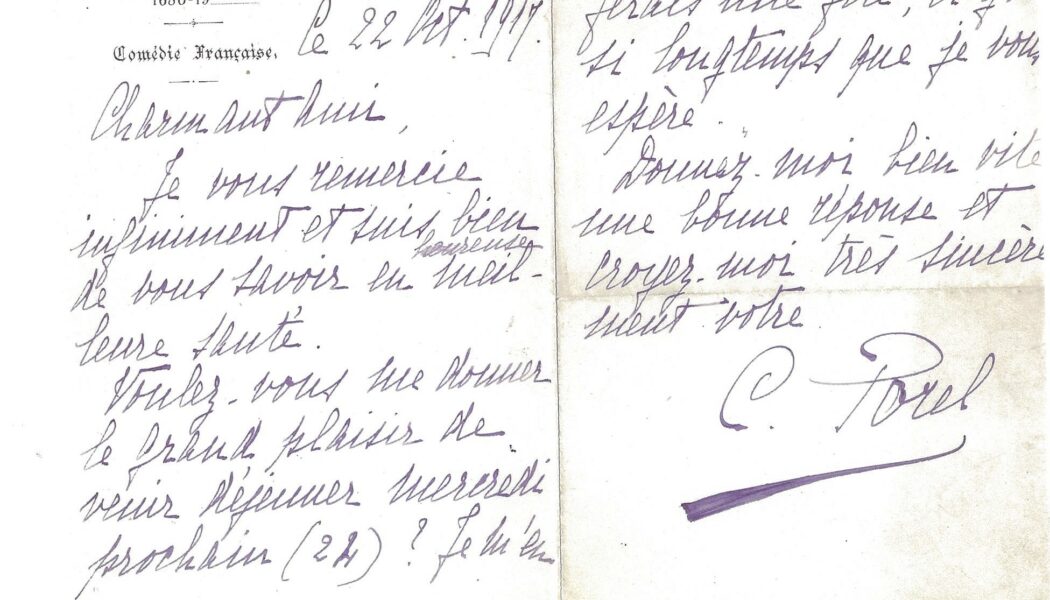 1680-19
Comédie Française.
Le 22 Oct. 1917.
Charmant Ami,
Je vous remercie
infiniment et suis bien
heureuse
de vous savoir en meil-
leure santé.
Voulez-vous me donner
le grand plaisir de
venir déjeuner mercredi
prochain (24) ? Je m'en
ferais une
si longtemps que je vous
espère.
Donnez-moi bien vite
une bonne réponse et
croyez-moi très sincère
ment votre
C. Porel